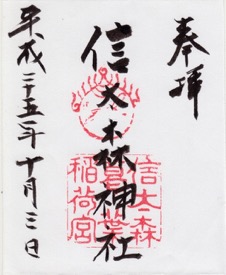 奉拝
信太森神社
信太森
葛葉
稲荷宮
平成二十五年十月三日